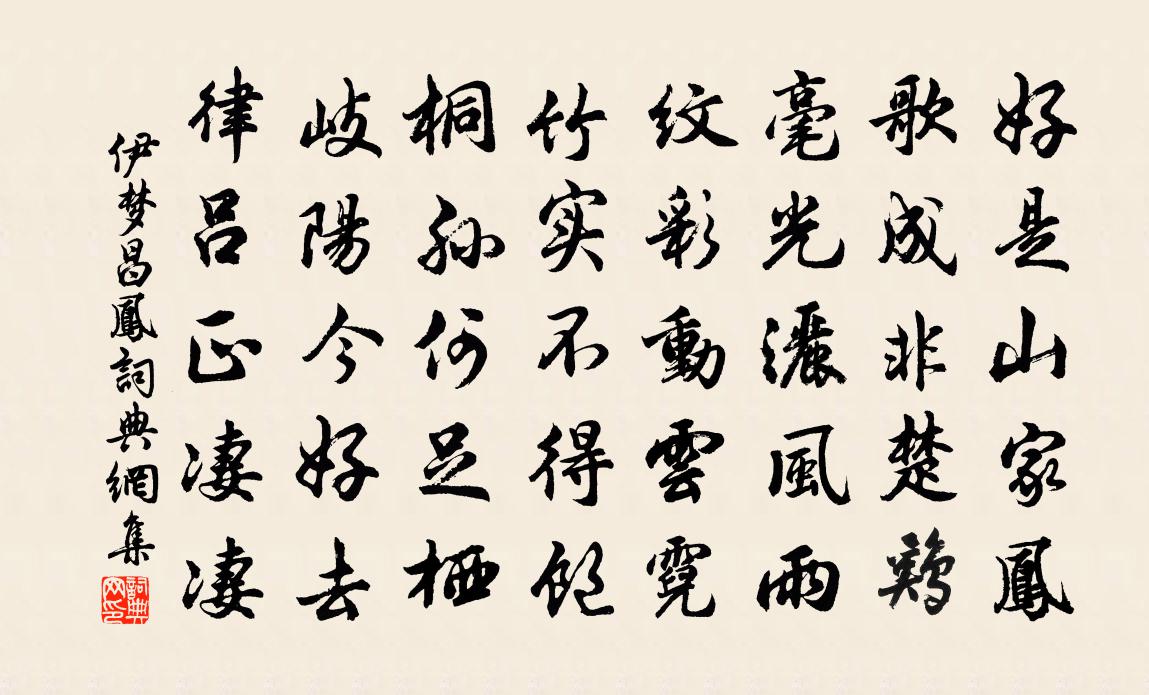 好是山家鳳
歌成非楚鷄
毫光灑風雨
紋彩動雲霓
竹实不得飽
桐孙何足栖
岐陽今好去
律呂正凄凄
伊梦昌鳳詞典網集
詞典